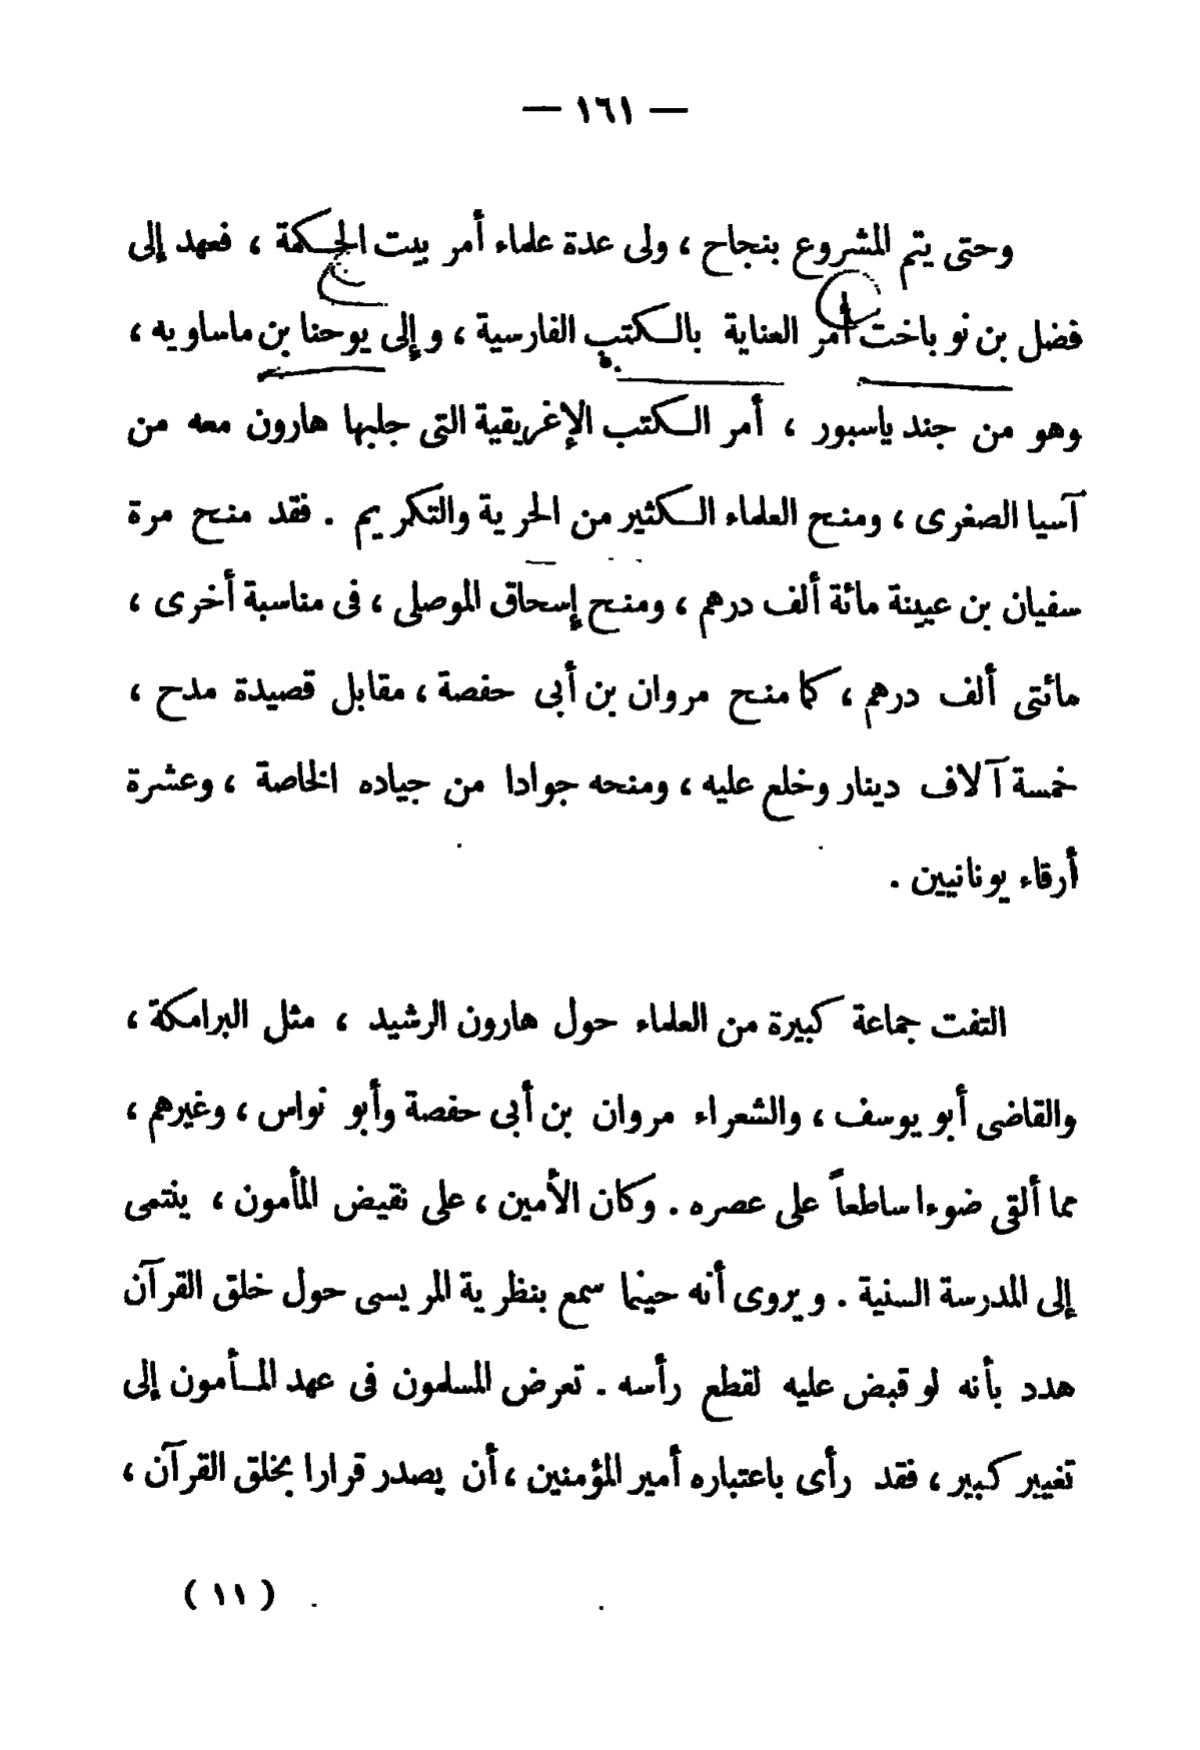 — ١٦١ —
وحتى يتم المشروع بنجاح ، ولى عدة علماء أمر بيت الحكمة ، فعهد إلى
فضل بن نو باخت أمر العناية بالكتب الفارسية ، و إلى يوحنا بن ماساويه ،
وهو من جند ياسبور ، أمر الكتب الإغريقية التى جلبها هارون معه من
آسيا الصغرى ، ومنح العلماء الكثير من الحرية والتكريم . فقد منح مرة
سفيان بن عيينة مائة ألف درهم ، ومنح إسحاق الموصلى ، فى مناسبة أخرى ،
مائتى ألف درهم ، كما منح مروان بن أبى حفصة ، مقابل قصيدة مدح ،
خمسة آلاف دينار وخلع عليه ، ومنحه جوادا من جياده الخاصة ، وعشرة
أرقاء يونانيين .
التفت جماعة كبيرة من العلماء حول هارون الرشيد ، مثل البرامكة ،
والقاضى أبو يوسف ، والشعراء مروان بن أبى حفصة وأبو نواس ، وغيرهم ،
مما ألقى ضوءا ساطعاً على عصره . وكان الأمين ، على نقيض المأمون ، ينتمى
إلى المدرسة السنية . و يروى أنه حينما سمع بنظرية المريسى حول خلق القرآن
هدد بأنه لو قبض عليه لقطع رأسه . تعرض المسلمون فى عهد المأمون إلى
تغيير كبير ، فقد رأى باعتباره أمير المؤمنين ، أن يصدر قرارا بخلق القرآن ،
( ١١ )